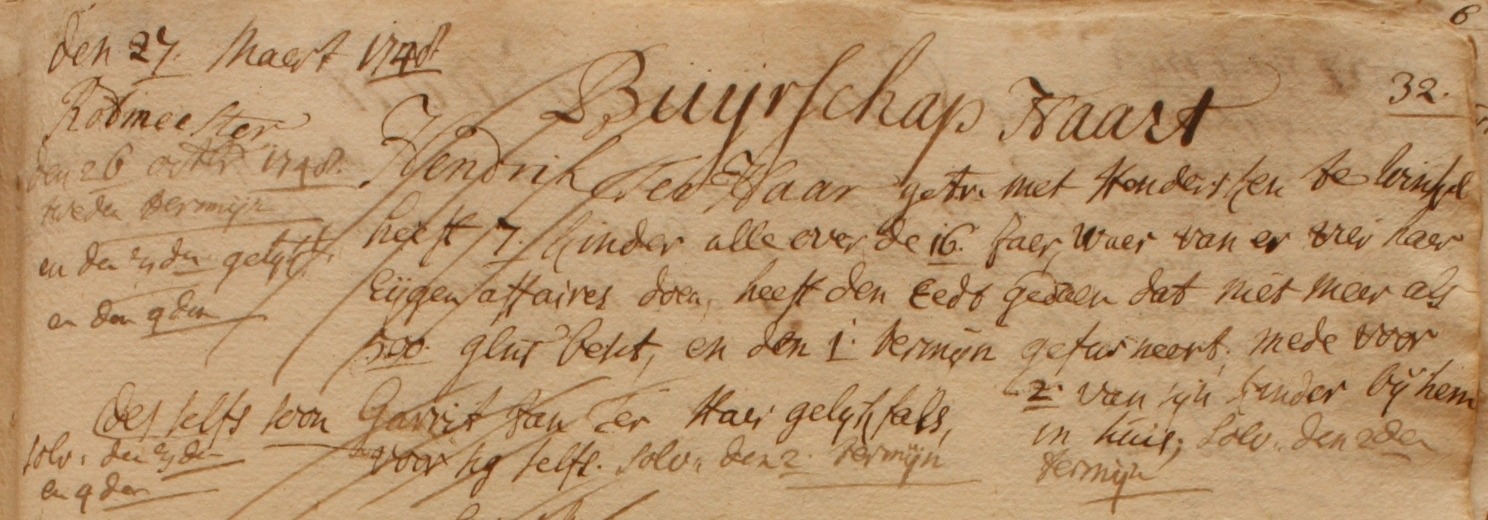 6
den 27 Maert 1748
Buijrschap Haart
32.
Rotmeester
den 26 octbr 1748.
tweden termijn
en den 3den gelijk
en den 4den
Hendrik ter Haar getr. met Hendersken te Winkel
heeft 7. kinder alle over de 16. Jaer, waer van er vier haer
Eijgen affaires doen, heeft den Eedt gedaen dat niet meer als
500 glns besit, en den 1. termijn gefurneert, mede voor
2 van sijn kinder bij hem
in huis; solv. den 2den
termijn
Des selfs soon Garrit Jan ter Haer gelijkfals,
voor sig selfs. solv. den 2. termijn
solv. den 3den
en 4den